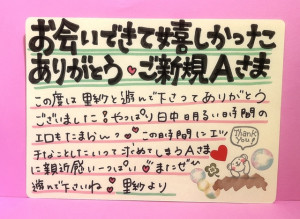 お会いできて嬉しかったこ
ありがとう♥ご新規Aさま
この度は里紗と遊んで下さってありがとう
ございました!やっぱり日中明るい時間の
エロもたまらんっ♥この時間にエッ
チなことしたいって求めてしまうAさま
に親近感いーっぱい♥またぜひ
遊んで下さいね♥里紗より
Thank
You!